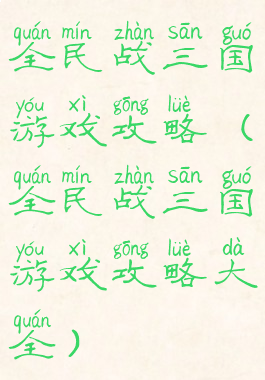 quán mín zhàn sān guó
全民战三国
yóu xì gōng lüè
游戏攻略（
quán mín zhàn sān guó
全民战三国
yóu xì gōng lüè dà
游戏攻略大
quán
全）